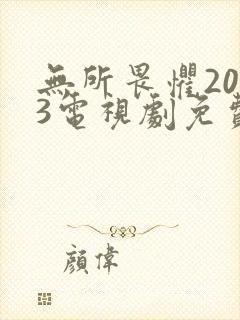 無所畏懼20
3電視劇免費
顔偉